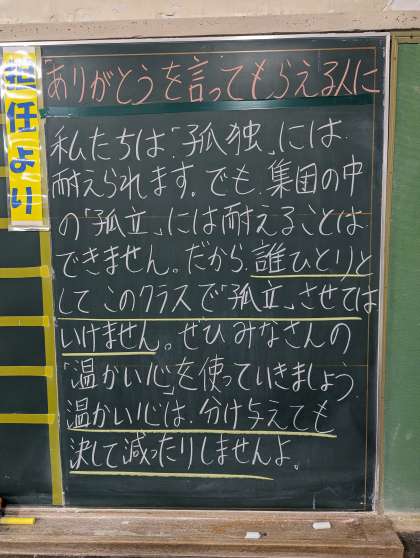 担任より
「ありがとうを言ってもらえる人に
私たちは「孤独」には
耐えられます。でも、集団の中
の「孤立」には耐えることは
できません。だから、誰ひとりと
してこのクラスで「孤立」させては
いけません。ぜひみなさんの
「温かい心」を使っていきましょう
温かい心は、分け与えても
決して減ったりしませんよ。